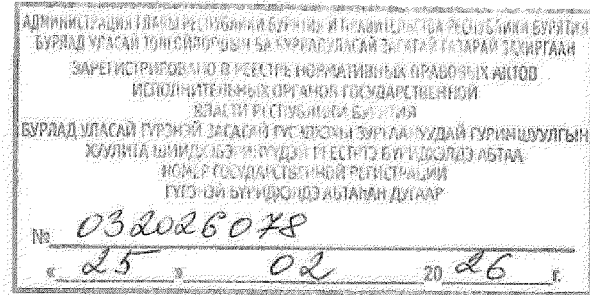 АДМИНИСТРАЦИЯ ГЛАВЫ РЕСПУБЛИКИ БУРЯТИЯ И ПРАВИТЕЛЬСТВА РЕСПУБЛИКИ БУРЯТИЯ
БУРЯАД УЛАСАЙ ТОЛГОЙЛОГШЫН БА БУРЯАД УЛАСАЙ ЗАСАГАЙ ГАЗАРАЙ ЗАХИРГААН
ЗАРЕГИСТРИРОВАНО В РЕЕСТРЕ НОРМАТИВНЫХ ПРАВОВЫХ АКТОВ
ИСПОЛНИТЕЛЬНЫХ ОРГАНОВ ГОСУДАРСТВЕННОЙ
ВЛАСТИ РЕСПУБЛИКИ БУРЯТИЯ
БУРЯАД УЛАСАЙ ГҮРЭНЭЙ ЗАСАГАЙ ГҮЙСЭДХЭХЫ ЗУРГААНУУДАЙ ГУРИМШУУЛГЫН
ХАУЛИТА РЕЕСТРТЭ БҮРИДХЭЛДЭ АБТАА
НОМЕР ГОСУДАРСТВЕННОЙ РЕГИСТРАЦИИ
ГҮРЭНЭЙ БҮРИДХЭЛДЭ АБТАҺАН ДУГААР
№ 032026078
« 25 » 02 20 26 г.